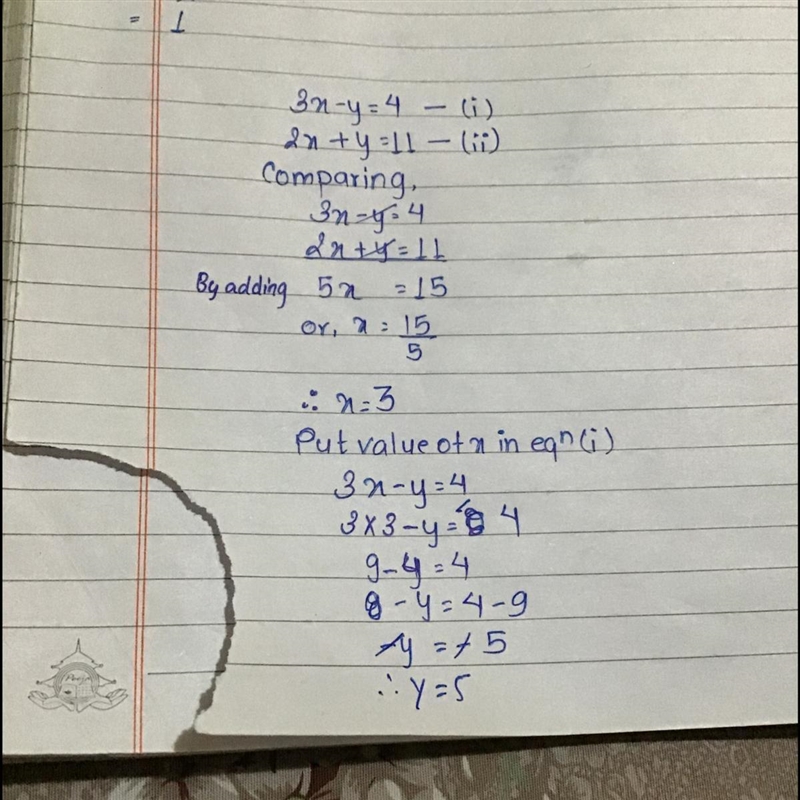 = 1
3x - y = 4 — (i)
2x + y = 11 — (ii)
Comparing,
3x - y = 4
2x + y = 11
By adding 5x = 15
or, x = 15/5
∴ x = 3
Put value of x in eqⁿ (i)
3x - y = 4
3 × 3 - y = 4
9 - y = 4
- y = 4 - 9
-y = -5
∴ y = 5